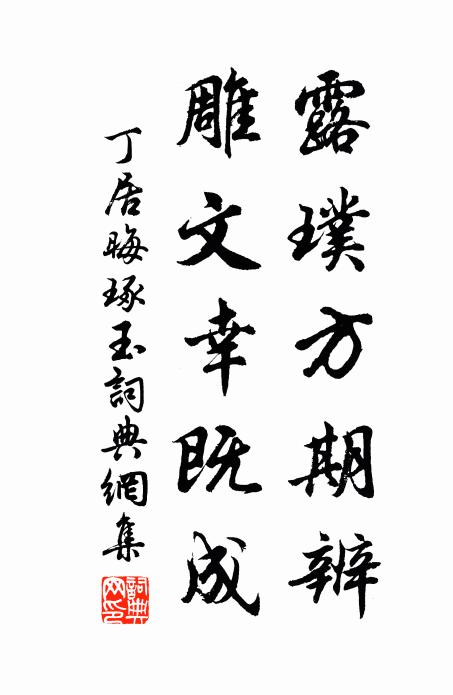 露璞方期辨
雕文幸既成
丁居晦琢玉詞典網集
詞典网印